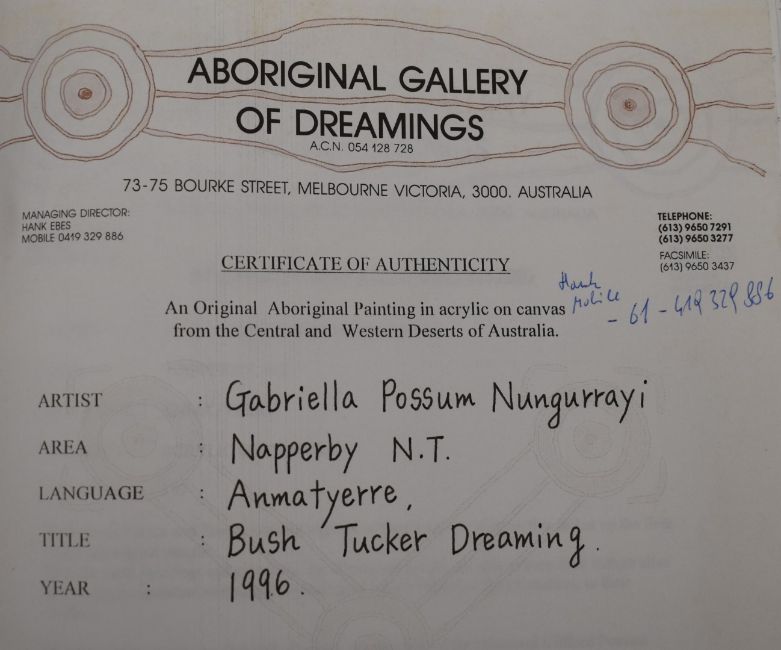 ABORIGINAL GALLERY
OF DREAMINGS
A.C.N. 054 128 728
73-75 BOURKE STREET, MELBOURNE VICTORIA, 3000. AUSTRALIA
MANAGING DIRECTOR:
HANK EBES
MOBILE 0419 329 886
TELEPHONE:
(613) 9650 7291
(613) 9650 3277
FACSIMILE:
(613) 9650 3437
CERTIFICATE OF AUTHENTICITY
Hank
Mobile
- 61 - 419 329 886
An Original Aboriginal Painting in acrylic on canvas
from the Central and Western Deserts of Australia.
ARTIST : Gabriella Possum Nungurrayi
AREA : Napperby N.T.
LANGUAGE : Anmatyerre,
TITLE : Bush Tucker Dreaming.
YEAR : 1996.